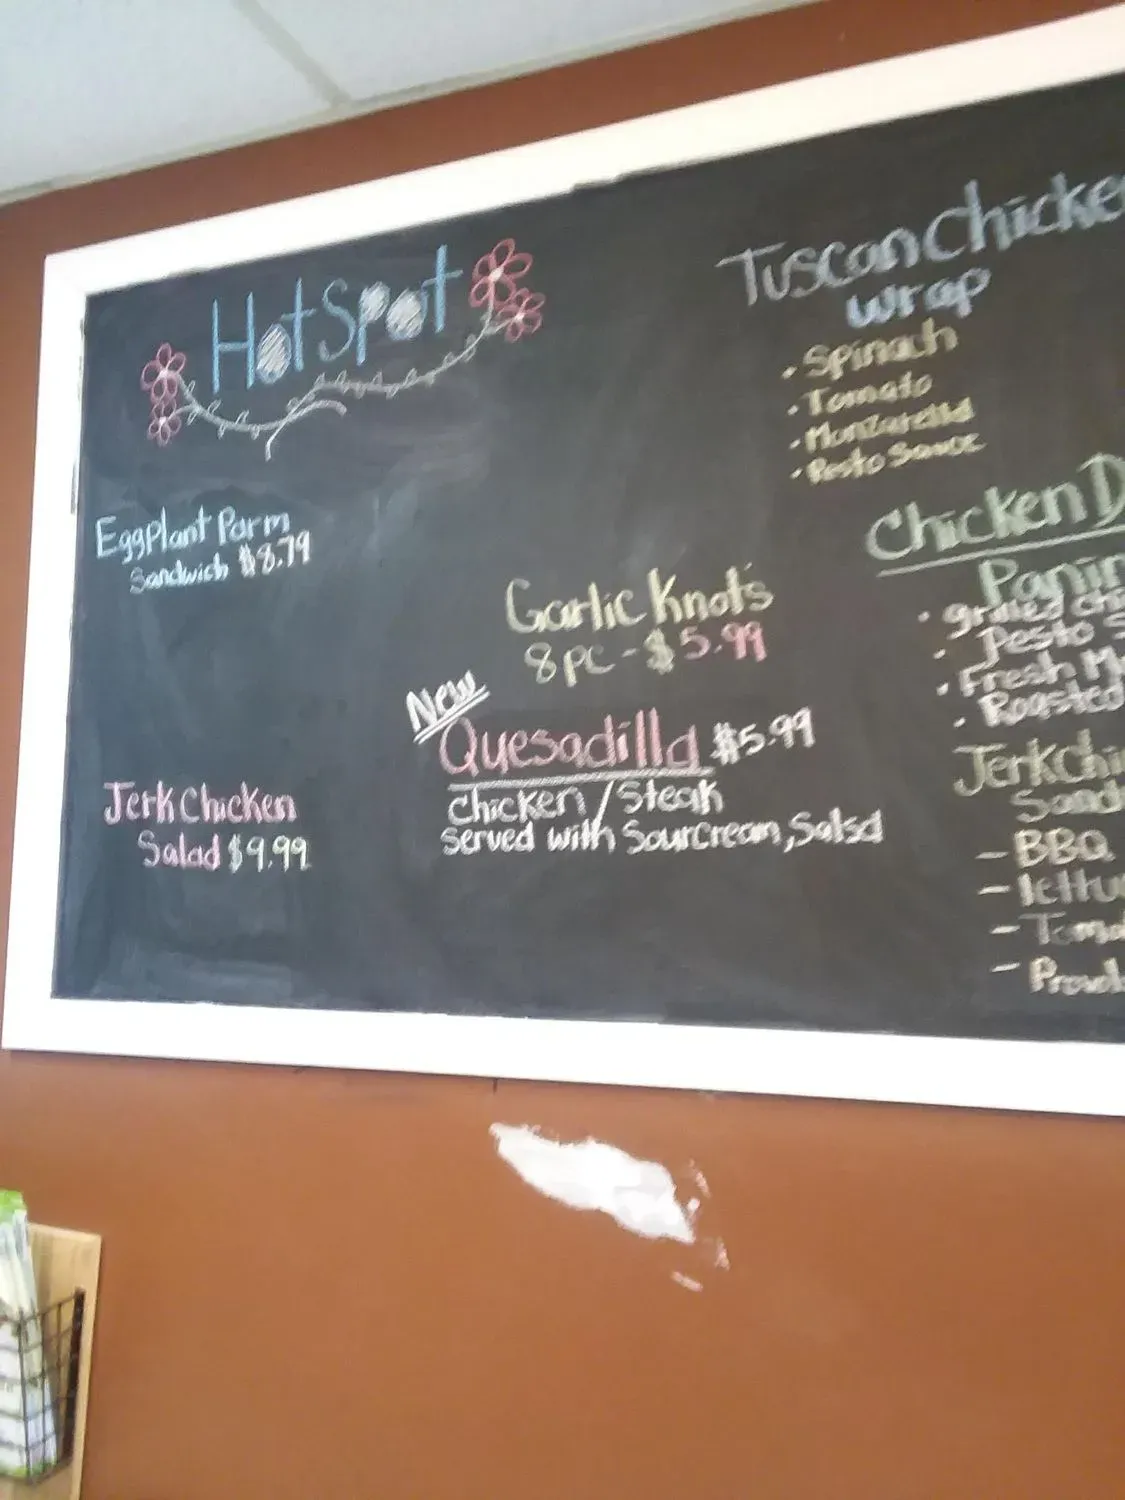 Hot Spot
Eggplant Parm
Sandwich $8.79
Jerk Chicken
Salad $9.99
Garlic Knots
8 pc - $5.99
New
Quesadilla $5.99
Chicken / Steak
Served with Sour Cream, Salsa
Tuscan Chicke
Wrap
• Spinach
• Tomato
• Monzarella
• Pesto Sauce
Chicken D
Panin
• Grilled Chi
• Pesto S
• Fresh M
• Roasted
Jerk Chi
Sand
- BBQ
- lettu
- Toma
- Provl